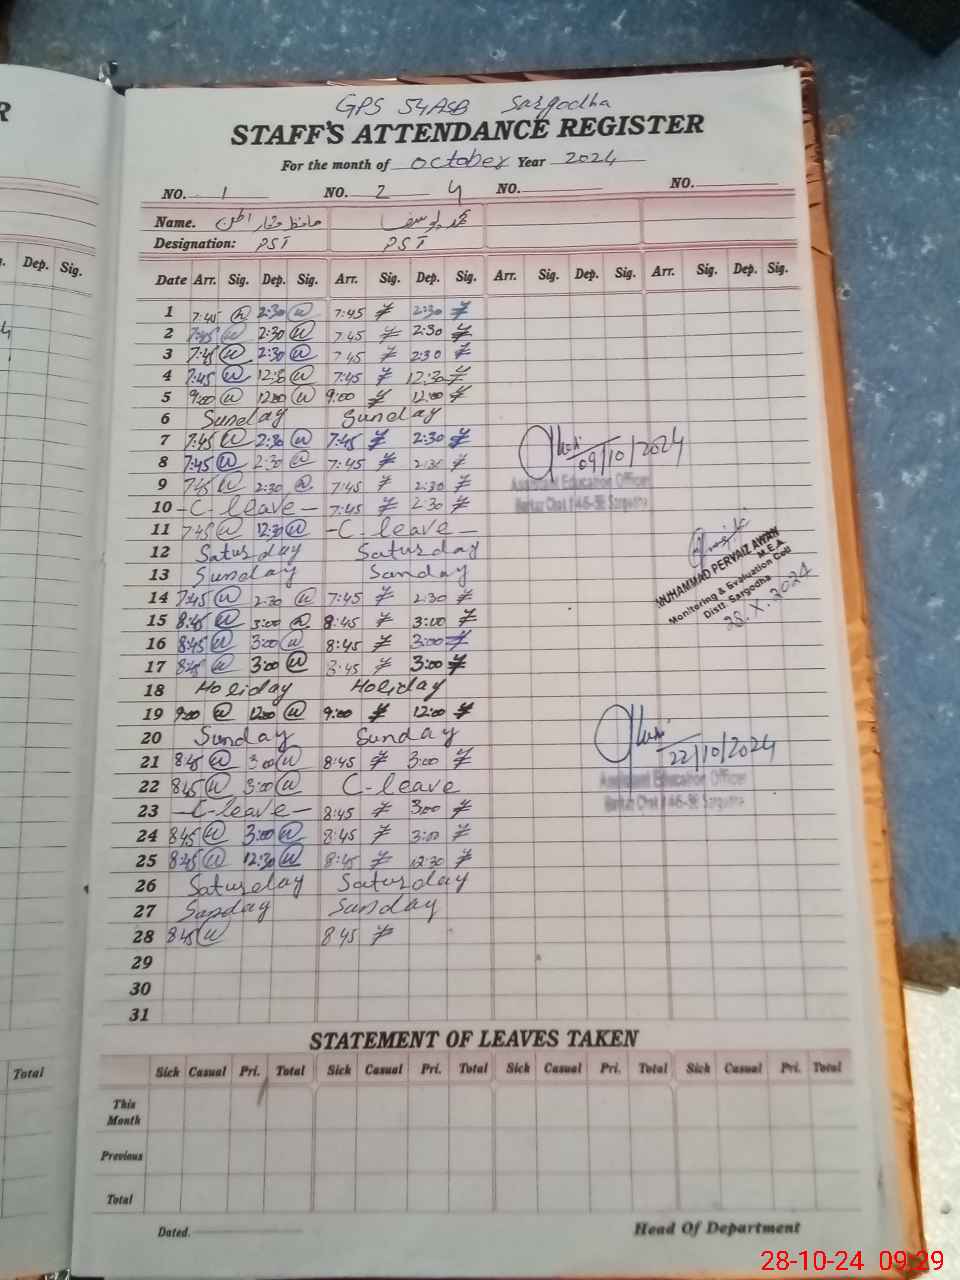 R
GPS 54ASB Sargodha
STAFF'S ATTENDANCE REGISTER
For the month of October Year 2024
NO. 1 NO. 2 4 NO. NO.
Name. حافظ
Designation: PST PST
Dep. Sig.
Date Arr. Sig. Dep. Sig. Arr. Sig. Dep. Sig. Arr. Sig. Dep. Sig. Arr. Sig. Dep. Sig.
1 7:45 2:30 7:45 2:30
2 7:45 2:30 7:45 2:30
3 7:45 2:30 7:45 2:30
4 7:45 12:30 7:45 12:30
5 9:00 12:00 9:00 12:00
6 Sunday Sunday
7 7:45 2:30 7:45 2:30
8 7:45 2:30 7:45 2:30
9 7:45 2:30 7:45 2:30
10 -C leave- 7:45 2:30
11 7:45 12:30 -C leave-
12 Saturday Saturday
13 Sunday Sunday
14 7:45 2:30 7:45 2:30
15 8:45 3:00 8:45 3:00
16 8:45 3:00 8:45 3:00
17 8:45 3:00 8:45 3:00
18 Holiday Holiday
19 9:00 12:00 9:00 12:00
20 Sunday Sunday
21 8:45 3:00 8:45 3:00
22 8:45 3:00 C-leave
23 -C-leave- 8:45 3:00
24 8:45 3:00 8:45 3:00
25 8:45 12:30 8:45 12:30
26 Saturday Saturday
27 Sunday Sunday
28 8:45 8:45
29
30
31
09/10/2024
Assistant Education Officer
MUHAMMAD PERVAIZ AWAN
M.E.A
Monitoring & Evaluation Cell
Distt. Sargodha
28.X.2024
22/10/2024
Assistant Education Officer
STATEMENT OF LEAVES TAKEN
Total
Sick Casual Pri. Total Sick Casual Pri. Total Sick Casual Pri. Total Sick Casual Pri. Total
This Month
Previous
Total
Dated. Head Of Department
28-10-24 09:29